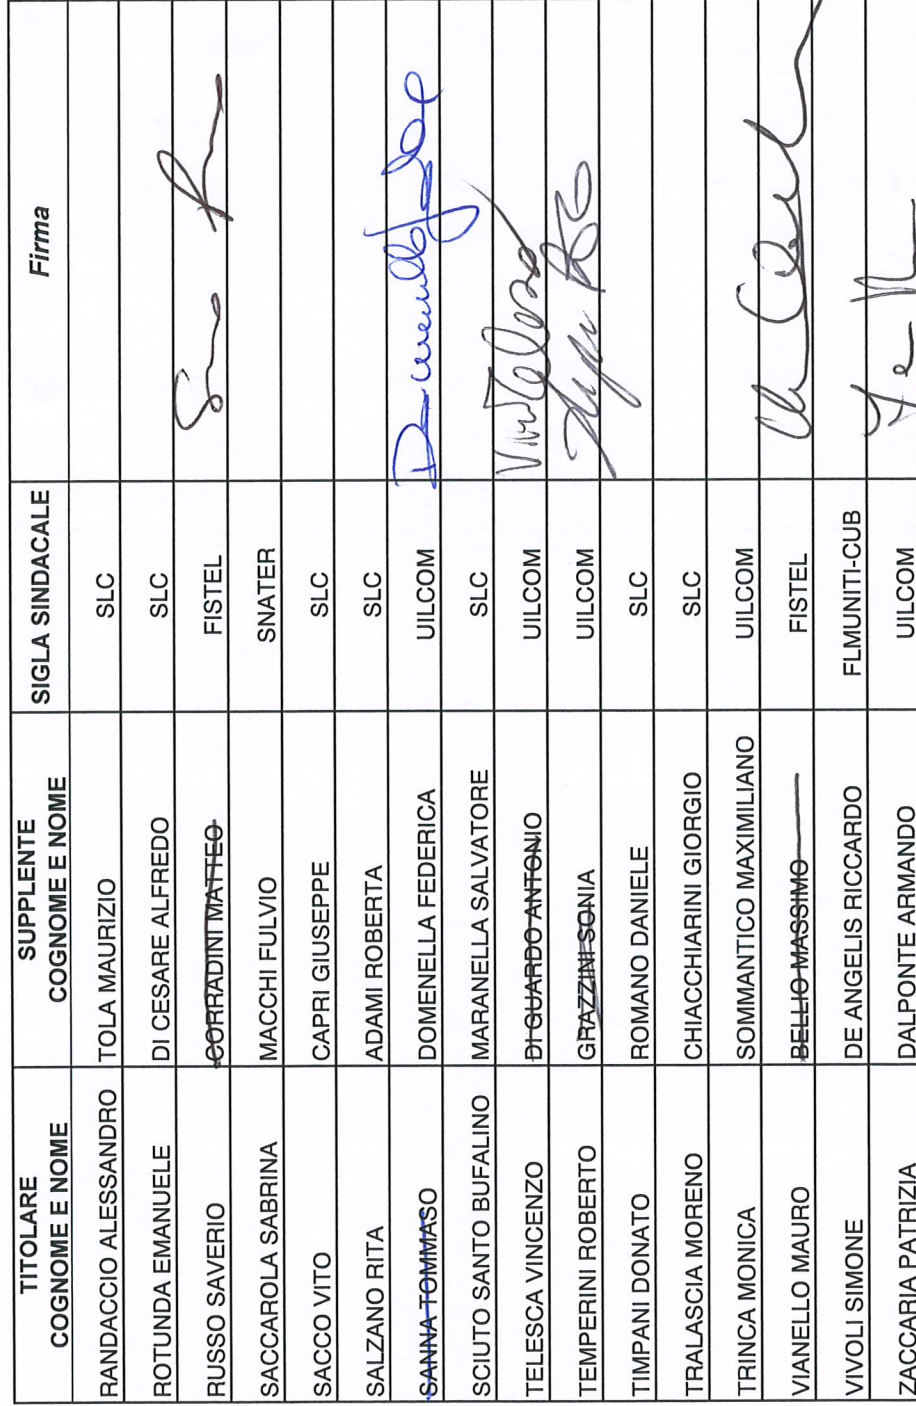 TITOLARE COGNOME E NOME SUPPLENTE COGNOME E NOME SIGLA SINDACALE Firma
RANDACCIO ALESSANDRO TOLA MAURIZIO SLC
ROTUNDA EMANUELE DI CESARE ALFREDO SLC
RUSSO SAVERIO CORRADINI MATTEO FISTEL
SACCAROLA SABRINA MACCHI FULVIO SNATER
SACCO VITO CAPRI GIUSEPPE SLC
SALZANO RITA ADAMI ROBERTA SLC
SANNA TOMMASO DOMENELLA FEDERICA UILCOM
SCIUTO SANTO BUFALINO MARANELLA SALVATORE SLC
TELESCA VINCENZO DI GUARDO ANTONIO UILCOM
TEMPERINI ROBERTO GRAZZINI SONIA UILCOM
TIMPANI DONATO ROMANO DANIELE SLC
TRALASCIA MORENO CHIACCHIARINI GIORGIO SLC
TRINCA MONICA SOMMANTICO MAXIMILIANO UILCOM
VIANELLO MAURO BELLIO MASSIMO FISTEL
VIVOLI SIMONE DE ANGELIS RICCARDO FLMUNITI-CUB
ZACCARIA PATRIZIA DALPONTE ARMANDO UILCOM